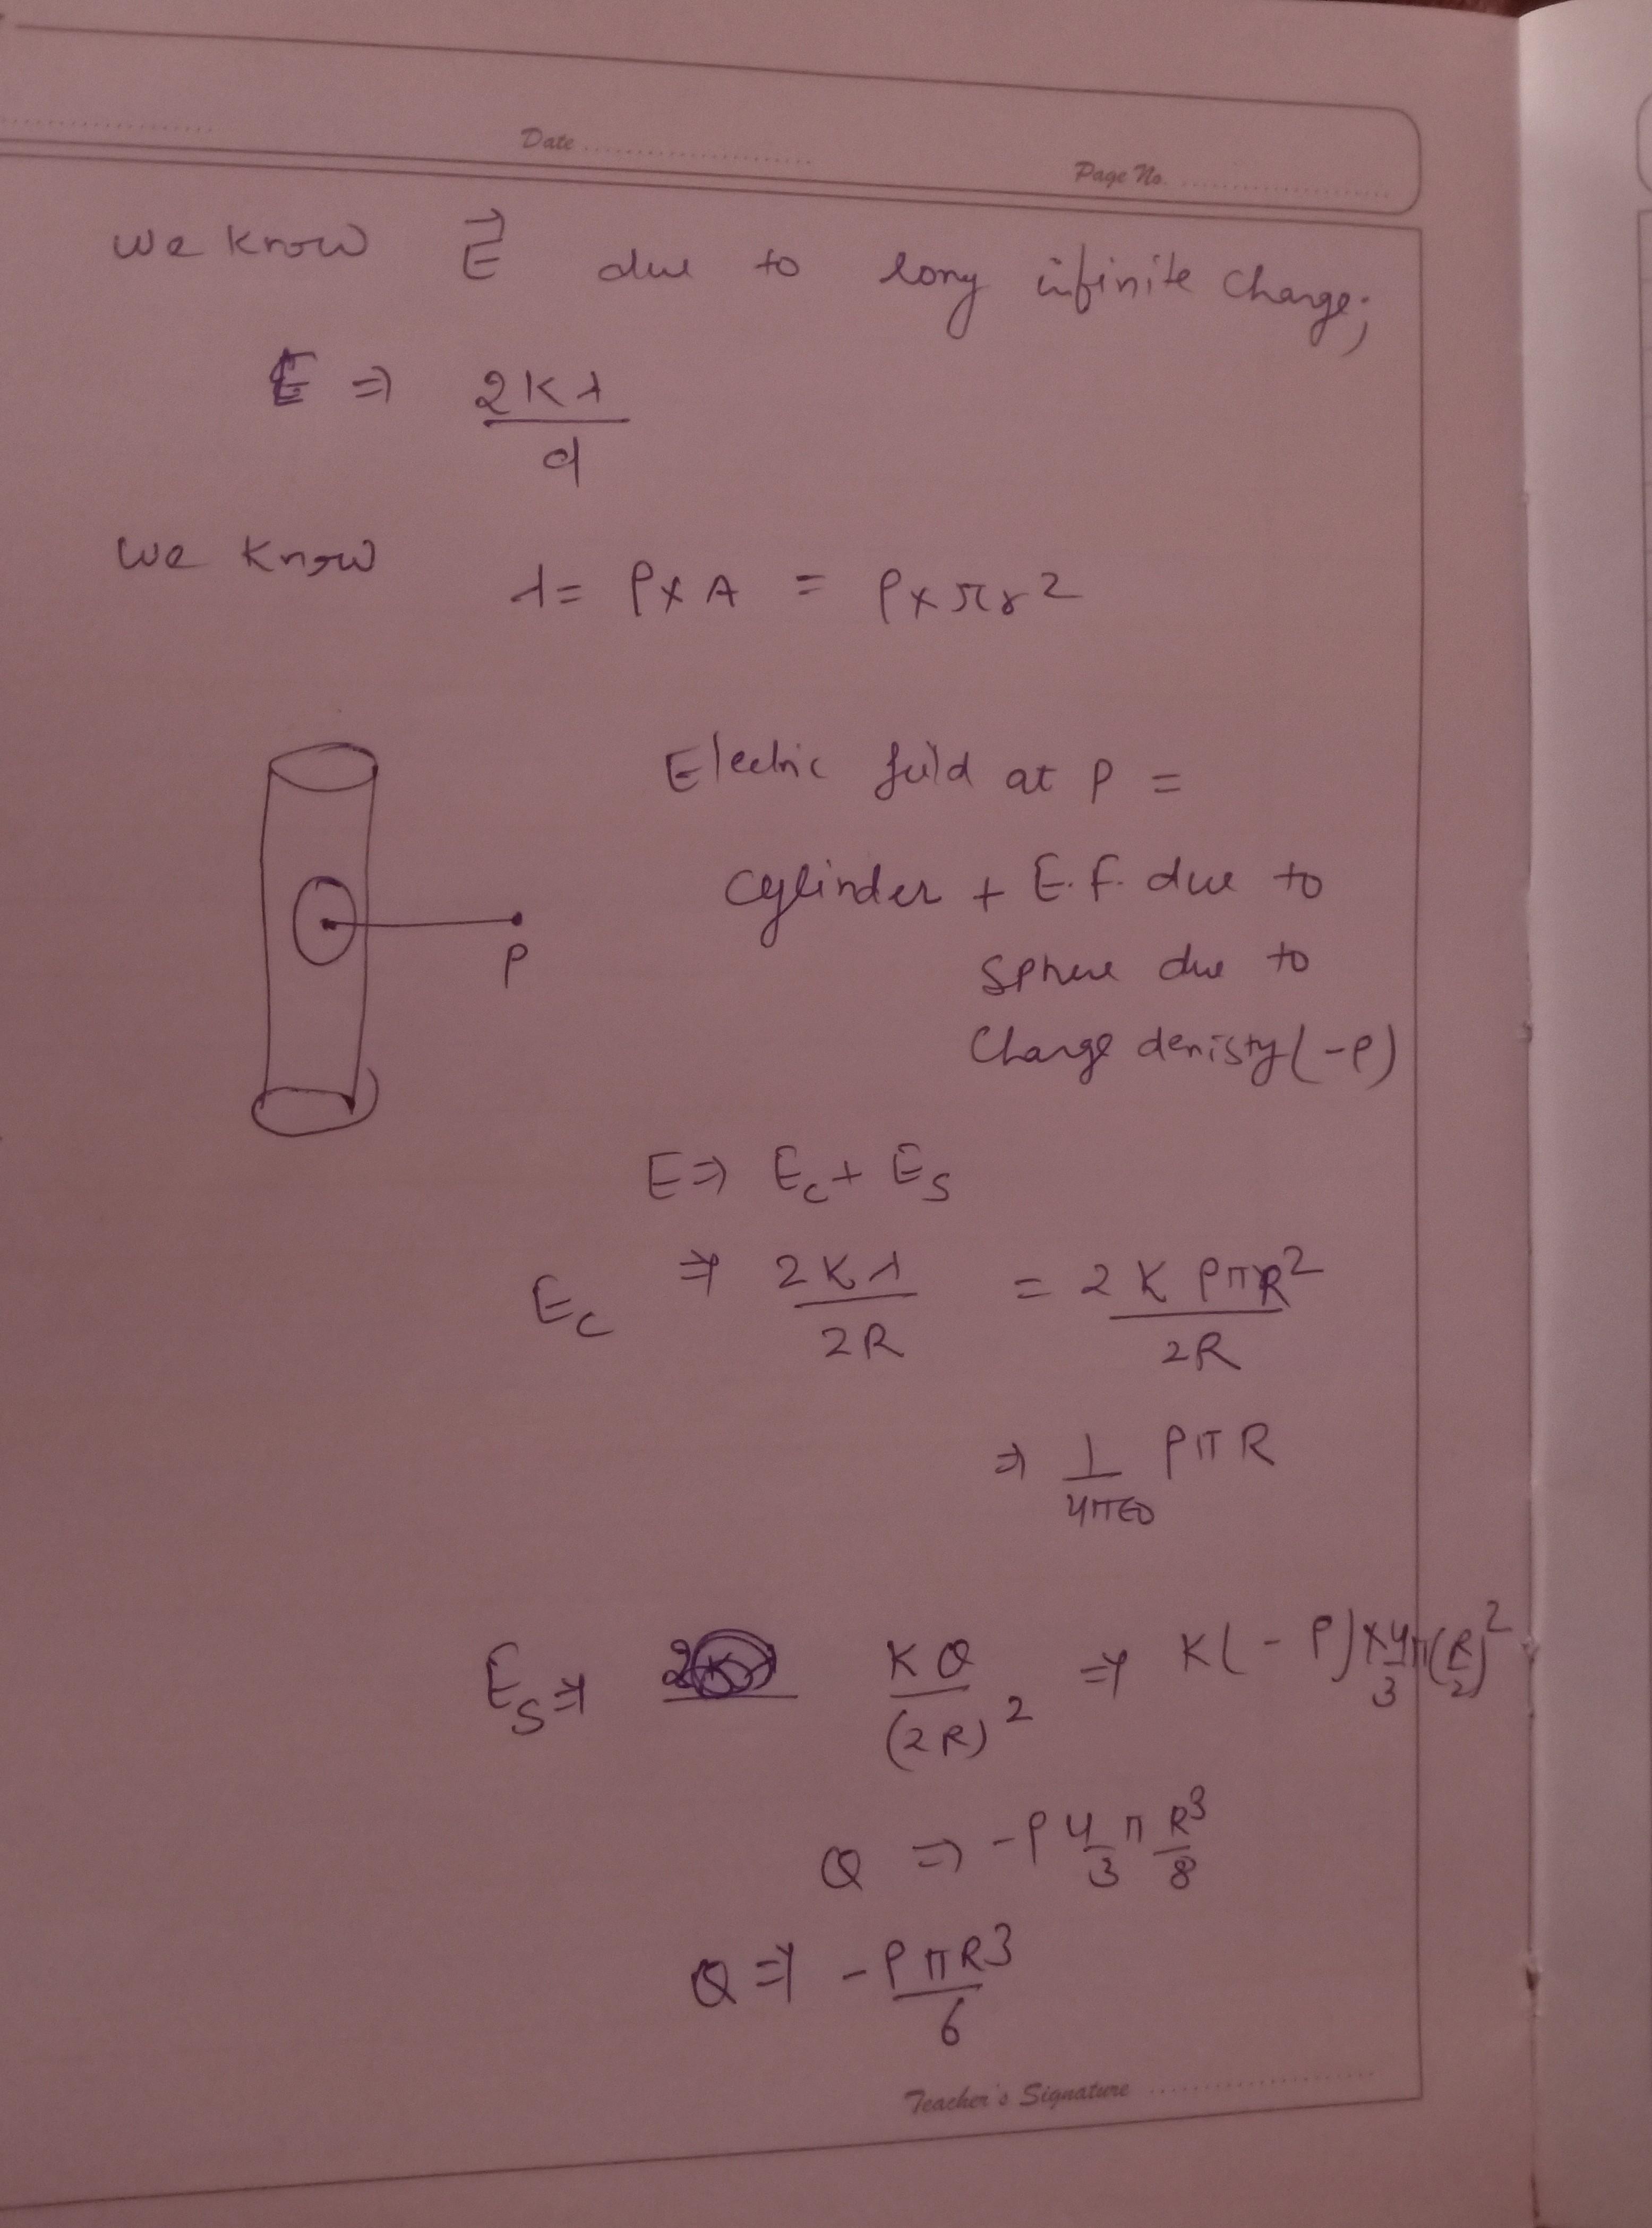 Date
Page No.
we know E⃗ due to long infinite charge;
E ⇒ 2Kλ/d
we know λ = ρ x A = ρ x πr²
Electric feild at P =
cylinder + E.F. due to
P
Sphere due to
Charge denisty (-ρ)
E ⇒ Ec + Es
Ec ⇒ 2Kλ/2R = 2KρπR²/2R
⇒ 1/4πε0 ρπR
Es ⇒ KQ/(2R)² ⇒ K(-ρ) x 4/3 π(R/2)²
Q ⇒ -ρ 4/3 π R³/8
Q ⇒ -ρπR3/6
Teacher's Signature